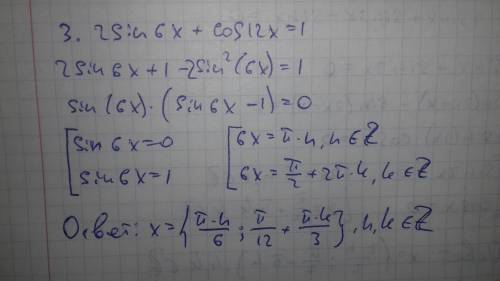 3. 2sin6x + cos12x = 1
2sin6x + 1 - 2sin²(6x) = 1
sin(6x)·(sin6x - 1) = 0
[sin6x = 0 [6x = π·n, n ∈ Z
[sin6x = 1 [6x = π/2 + 2π·k, k ∈ Z
Ответ: x = {π·n/6; π/12 + π·k/3}, n, k ∈ Z